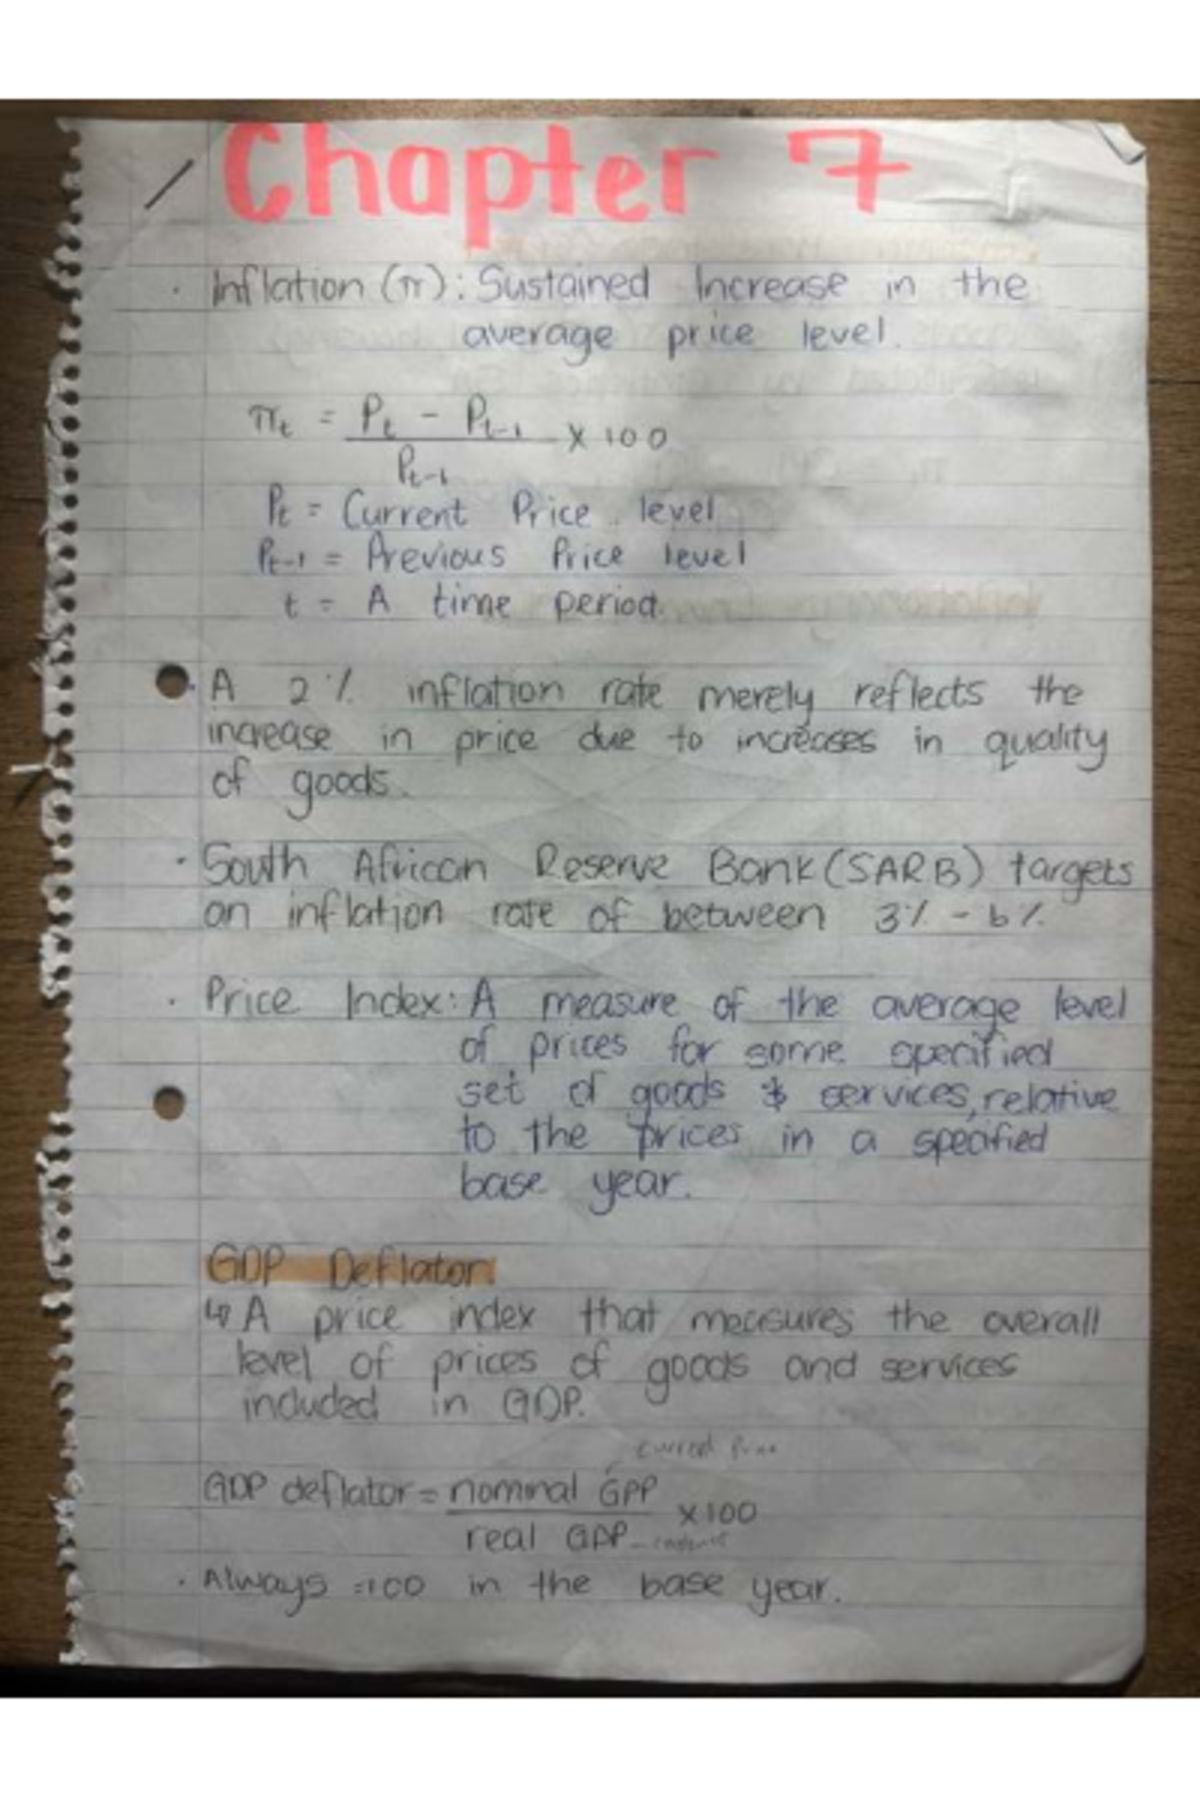 Chapter 7
· Inflation (π): Sustained Increase in the
average price level.
πt = Pt - Pt-1 × 100
Pt-1
Pt = Current Price level
Pt-1 = Previous Price level
t = A time period.
· A 2% inflation rate merely reflects the
increase in price due to increases in quality
of goods.
· South African Reserve Bank (SARB) targets
an inflation rate of between 3% - 6%
· Price Index: A measure of the average level
of prices for some specified
set of goods & services, relative
to the prices in a specified
base year.
GDP Deflator
↳ A price index that measures the overall
level of prices of goods and services
included in GDP.
GDP deflator = nominal GDP × 100
real GDP
· Always =100 in the base year.